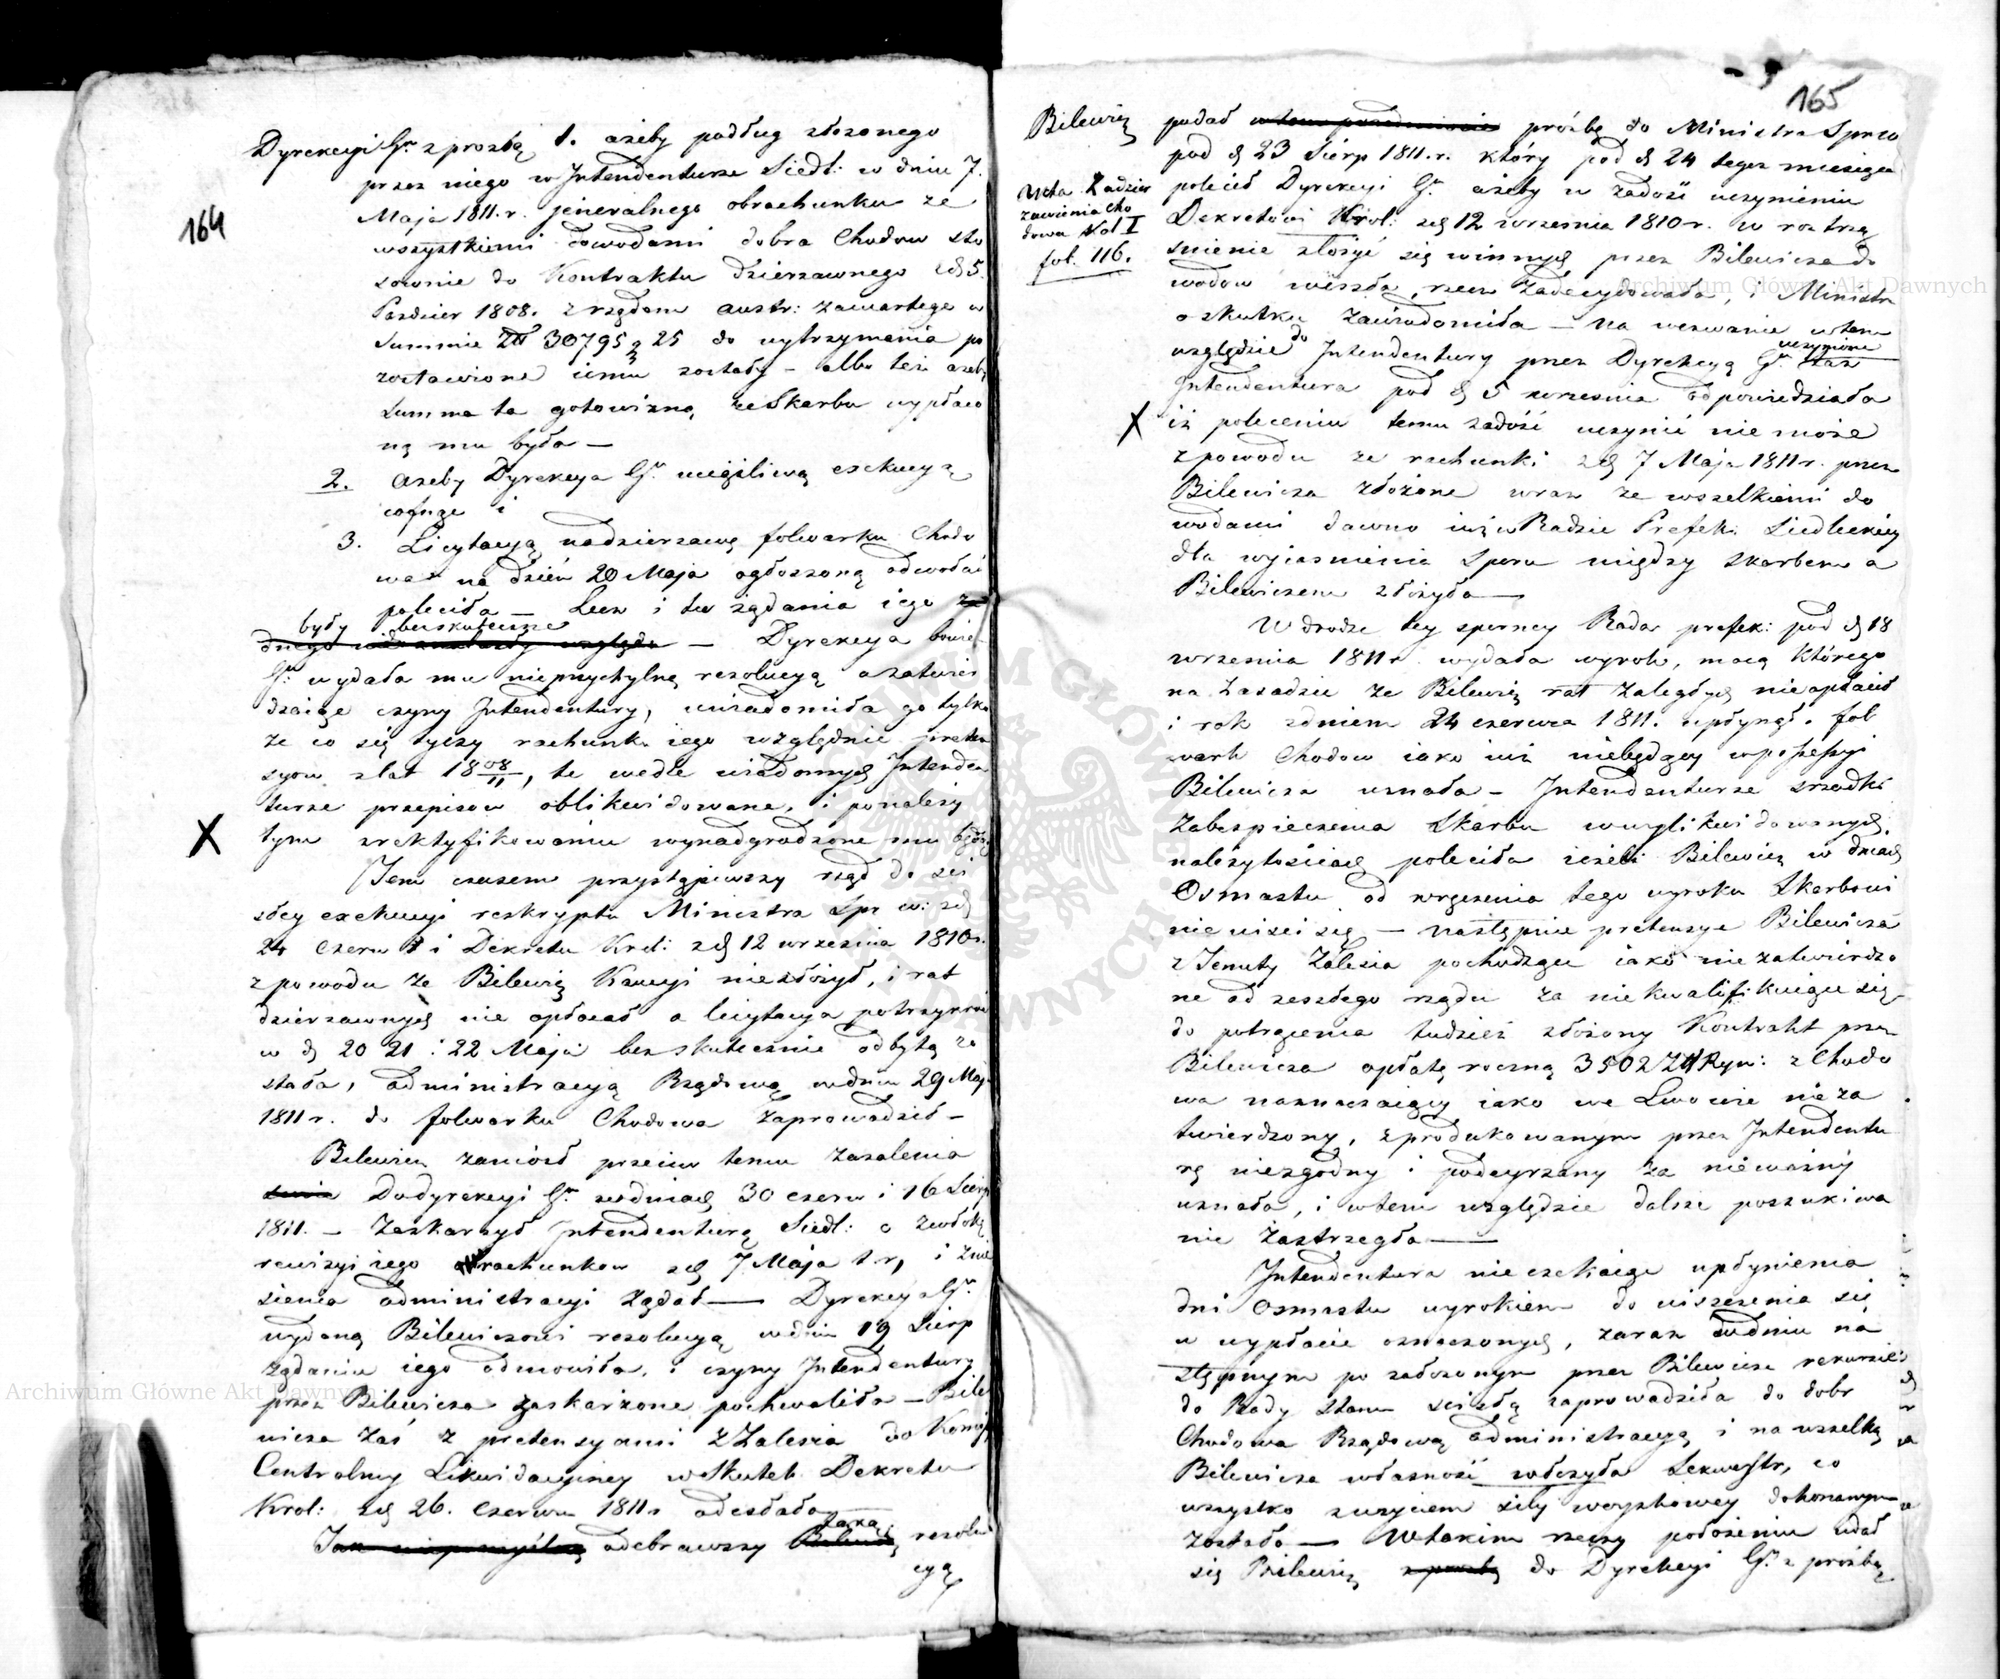 164
Dyrekcyi Gr. z prosbą 1. ażeby podług złozonego
przez niego w Intendenturze Siedl: w dniu 7.
Maja 1811. r. jeneralnego obrachunku ze
wszystkiemi dowodami dobra Chodow sto
sownie do Kontraktu dzierzawnego z d 5.
Pazdzier 1808. z rządem austr: zawartego w
Summie Zł 30795 g 25 do wytrzymania po
zostawione iemu zostały – albo też azeby
Summa ta gotowizną ze Skarbu wypłaco
ną mu była –
2. azeby Dyrekcya Gr. uciążliwą exekucyą
cofnęła i
3. Licytacyą na dzierzawę folwarku Chodo
wa na dzień 20 Maja ogłoszoną odwołać
poleciła – Lecz i te żądania iego
były bezskuteczne
– Dyrekcya bowie
Gr. wydała mu nieprzychylną rezolucyą a zatwier
dzaiąc czyny Intendentury, uwiadomiła go tylko
że co się tyczy rachunku iego względnie preten
syow z lat 18 08/11, te wedle wiadomych Intenden
turze przepisow oblikwidowane, i po należy
tym zrektyfikowaniu wynadgrodzone mu będą
Tem czasem przystąpiwszy rząd do ści
słey exekucyi reskryptu Ministra Spr w: z d
24 Czerw i Dekretu Krol: z d 12 wrzesnia 1810 r.
z powodu że Bilewicz Kaucyi nie złożył, i rat
dzierzawnych nie opłacał a licytacya potrzykroć
w d 20 21 i 22 Maja bezskutecznie odbytą zo
stała, administracyą Rządową w dniu 29 Maja
1811 r. do folwarku Chodowa zaprowadził –
Bilewicz zaniosł przeciw temu zazalenia
Do dyrekcyi Gr. w dniach 30 czerw i 16 Sierp
1811. – Zaskarzył Intendenturą Siedl: o zwłokę
rewizyi iego rachunkow z d 7 Maja t r, i znie
sienia administracyi żądał — Dyrekcya Gr.
wydaną Bilewiczowi rezolucyą w dniu 19 Sierp
żądaniu iego odmowiła, i czyny Intendentury
przez Bilewicza zaskarżone pochwaliła – Bile
wicza zaś z pretensyami z Zalesia do Komisyi
Centralney Likwidacyiney w Skutek Dekretu
Krol: z d 26. Czerwca 1811 r odesłała
odebrawszy taką rezolu
cyą
165
Bilewicz podał prózbę do Ministra Spraw
pod d 23 Sierp 1811. r. który pod d 24 tegoz miesiąca
polecił Dyrekcyi Gr. ażeby w zadość uczynieniu
Dekretowi Krol: z d 12 wrzesnia 1810 r. w roztrzą
snienie złożyć się winnych przez Bilewicza do
wodow weszła, rzecz zadecydowała, i Ministra
o skutku zawiadomiła – na wezwanie w tem
względzie do Intendentury przez Dyrekcyą Gr. uczynione taż
Intendentura pod d 5 wrzesnia odpowiedziała
iż poleceniu temu zadość uczynić nie może
z powodu że rachunki z d 7 Maja 1811 r. przez
Bilewicza złożone wraz ze wszelkiemi do
wodami dawno iuż w Radzie Prefek: Siedleckiey
dla wyiasnienia Sporu między Skarbem a
Bilewiczem złożyła —
Akta
zawienia Cho
dowa Vol I
fol. 116.
W drodze tey sporney Rada prefek: pod d 18
wrzesnia 1811 r. wydała wyrok, mocą którego
na zasadzie że Bilewicz rat zaległych nie opłacił
i rok z dniem 24 czerwca 1811. upłynął. fol
wark Chodow iako iuż niebędący w possessyi
Bilewicza uznała – Intendenturze srzodki
zabezpieczenia Skarbu w wylikwidowanych
należytościach poleciła ieżeli Bilewicz w dniach
Osmastu od wręczenia tego wyroku Skarbowi
nie uisci się – następnie pretensye Bilewicza
z Tenuty Zalesia pochodzące iako nie zatwierdzo
ne od zeszłego rządu za niekwalifikuiące się
do potrącenia tudzież złożony Kontrakt przez
Bilewicza opłatę roczną 3502 Zł Ryn: z Chodo
wa naznaczaiący iako we Lwowie nieza
twierdzony, z produkowanym przez Intendentu
rę niezgodny i podeyrzany za nieważny
uznała, i w tem względzie dalsze poszukiwa
nie zastrzegła —
Intendentura nie czekaiąc upłynienia
dni Osmastu wyrokiem do uiszczenia się
w wypłacie oznaczonych, zaraz w dniu na
stępnym po założonym przez Bilewicza rekursie
do Rady Stanu scisłą zaprowadziła do dobr
Chodowa Rządową administracyą i na wszelką
Bilewicza własność włożyła Sekwestr, co
wszystko z użyciem siły woyskowey dokonanym
zostało — W takim rzeczy położeniu udał
się Bilewicz do Dyrekcyi Gr. z prózbą
Archiwum Główne Akt Dawnych
Archiwum Główne Akt Dawnych